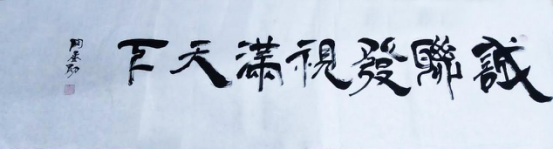 誠聯發視滿天下